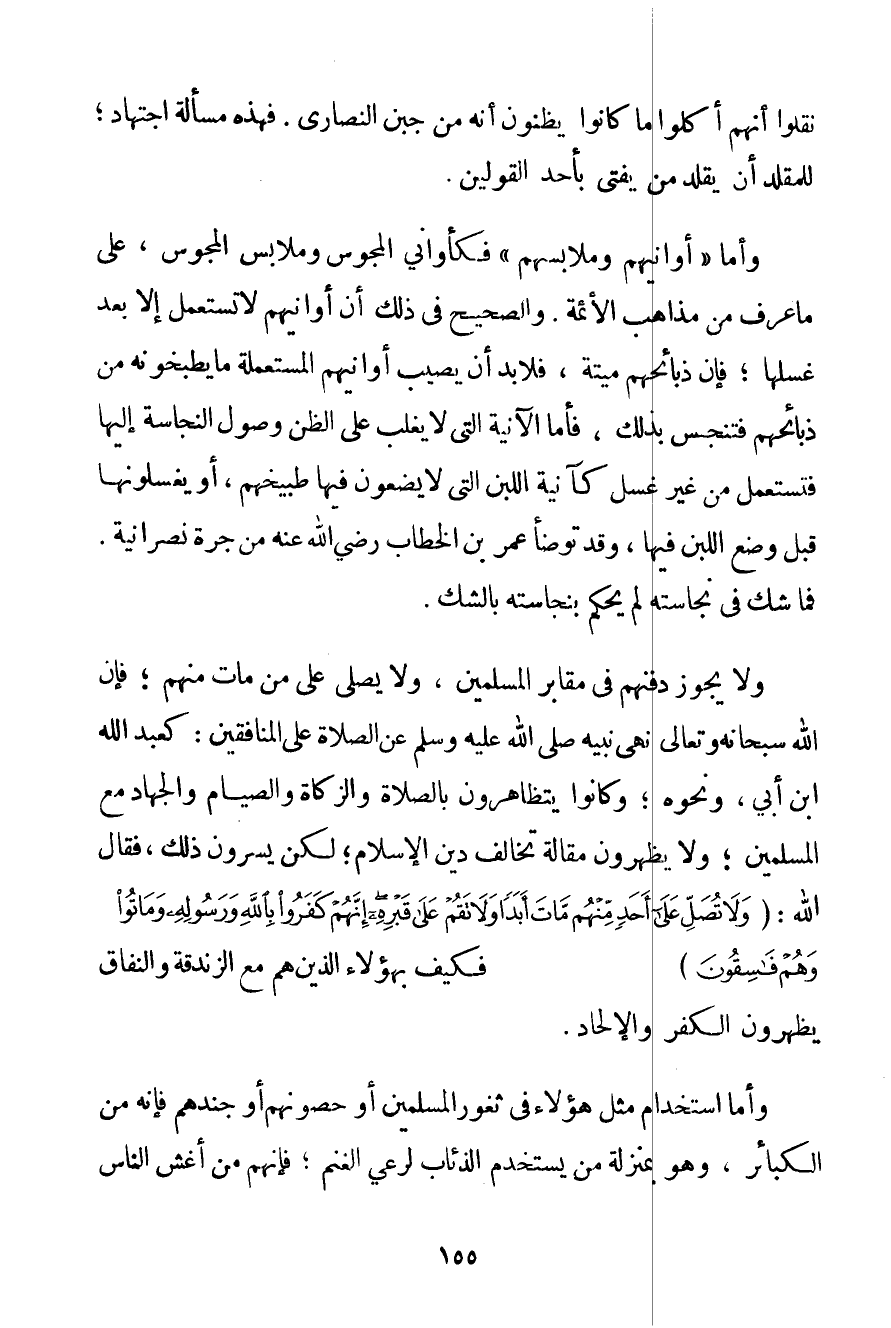 نقلوا أنهم أكلوا ما كانوا يظنون أنه من جبن النصارى . فهذه مسألة اجتهاد ؛
للمقلد أن يقلد من يفتى بأحد القولين .
وأما « أوانيهم وملابسهم » فكأواني المجوس وملابس المجوس ، على
ماعرف من مذاهب الأئمة . والصحيح فى ذلك أن أوانيهم لاتستعمل إلا بعد
غسلها ؛ فإن ذبائحهم ميتة ، فلابد أن يصيب أوانيهم المستعملة مايطبخونه من
ذبائحهم فتنجس بذلك ، فأما الآنية التى لايغلب على الظن وصول النجاسة إليها
فتستعمل من غير غسل كآنية اللبن التى لايضعون فيها طبيخهم ، أو يغسلونها
قبل وضع اللبن فيها ، وقد توضأ عمر بن الخطاب رضي الله عنه من جرة نصرانية .
فما شك فى نجاسته لم يحكم بنجاسته بالشك .
ولا يجوز دفنهم فى مقابر المسلمين ، ولا يصلى على من مات منهم ؛ فإن
الله سبحانه وتعالى نهى نبيه صلى الله عليه وسلم عن الصلاة على المنافقين : كعبد الله
ابن أبي ، ونحوه ؛ وكانوا يتظاهرون بالصلاة والزكاة والصيام والجهاد مع
المسلمين ؛ ولا يظهرون مقالة تخالف دين الإسلام ؛ لكن يسرون ذلك ، فقال
الله : ( وَلَا تُصَلِّ عَلَىٰٓ أَحَدٍ مِّنْهُم مَّاتَ أَبَدًا وَلَا تَقُمْ عَلَىٰ قَبْرِهِۦٓ ۖ إِنَّهُمْ كَفَرُوا۟ بِٱللَّهِ وَرَسُولِهِۦ وَمَاتُوا۟
وَهُمْ فَـٰسِقُونَ ) فكيف بهؤلاء الذين هم مع الزندقة والنفاق
يظهرون الكفر والإلحاد .
وأما استخدام مثل هؤلاء فى ثغور المسلمين أو حصونهم أو جندهم فإنه من
الكبائر ، وهو بمنزلة من يستخدم الذئاب لرعي الغنم ؛ فإنهم من أغش الناس
١٥٥